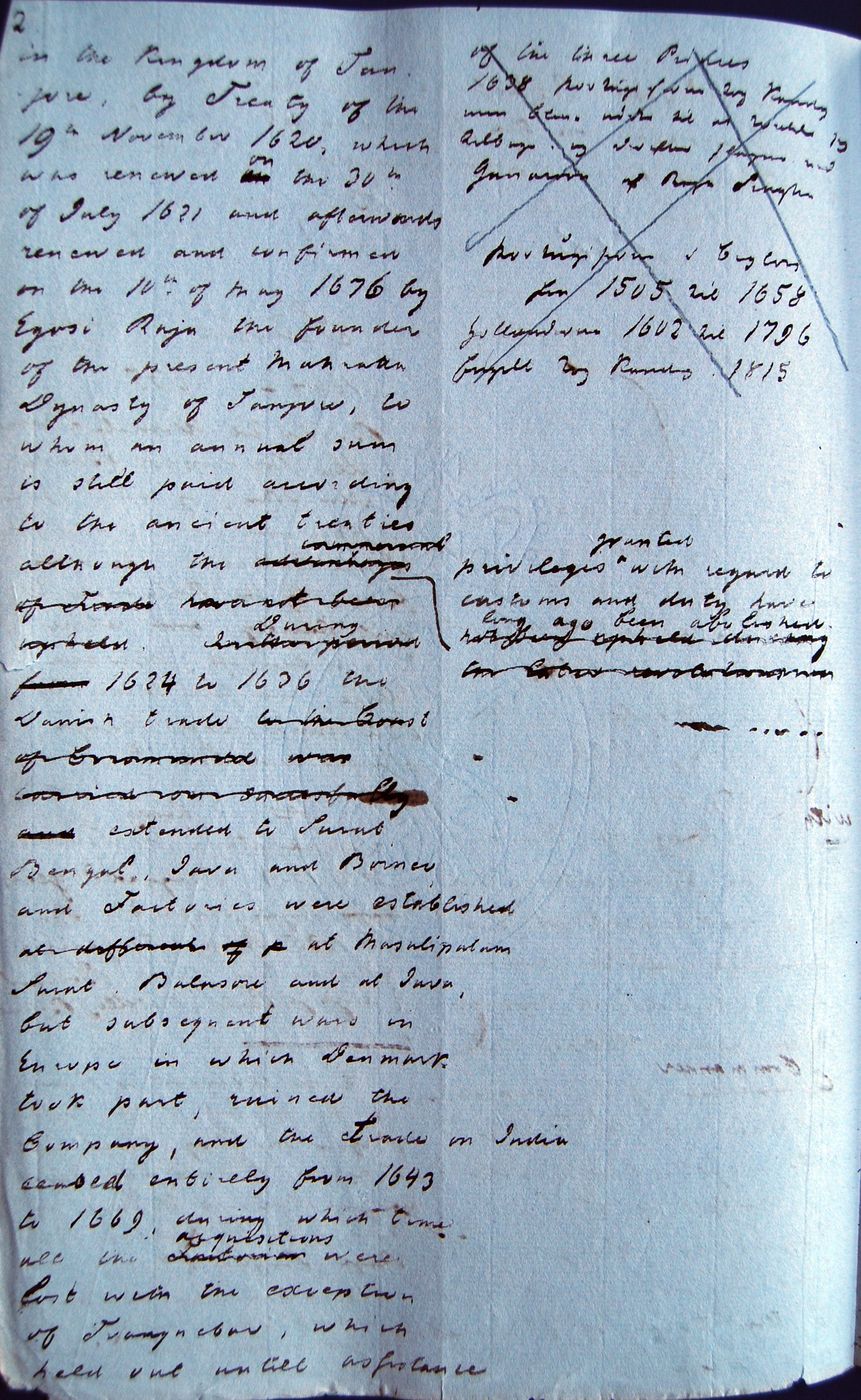 2
in the Kingdom of Tan-
jore, by Treaty of the
19th November 1620, which
was renewed on the 30th
of July 1621 and afterwards
renewed and confirmed
on the 10th of May 1676 by
Egosi Raja the founder
of the present Mahratta
Dynasty of Tanjore, to
whom an annual sum
is still paid according
to the ancient treaties
commercial
although the advantages
of Trade have not been
During
upheld. In the period
from 1624 to 1636 the
Danish trade to the Coast
of Coromandel was
carried on sucessfully
and extended to Surat
Bengal, Java and Borneo
and Factories were established
at different of p at Masulipatam
Surat, Balasore and at Java,
but subsequent wars in
Europe in which Denmark
took part, ruined the
Company, and the Trade on India
ceased entirely from 1643
to 1669, during which time
acquisitions
all the Factories were
lost with the exception
of Tranquebar, which
held out untill assistance
of the three
1638 Kandy
Portugiserne i Ceylon
fra 1505 til 1658
Hollænderne 1602 til 1796
Kandy. 1815
granted
privileges with regard to
customs and duty have
long ago been abolished.
not been upheld during
the later revolutions